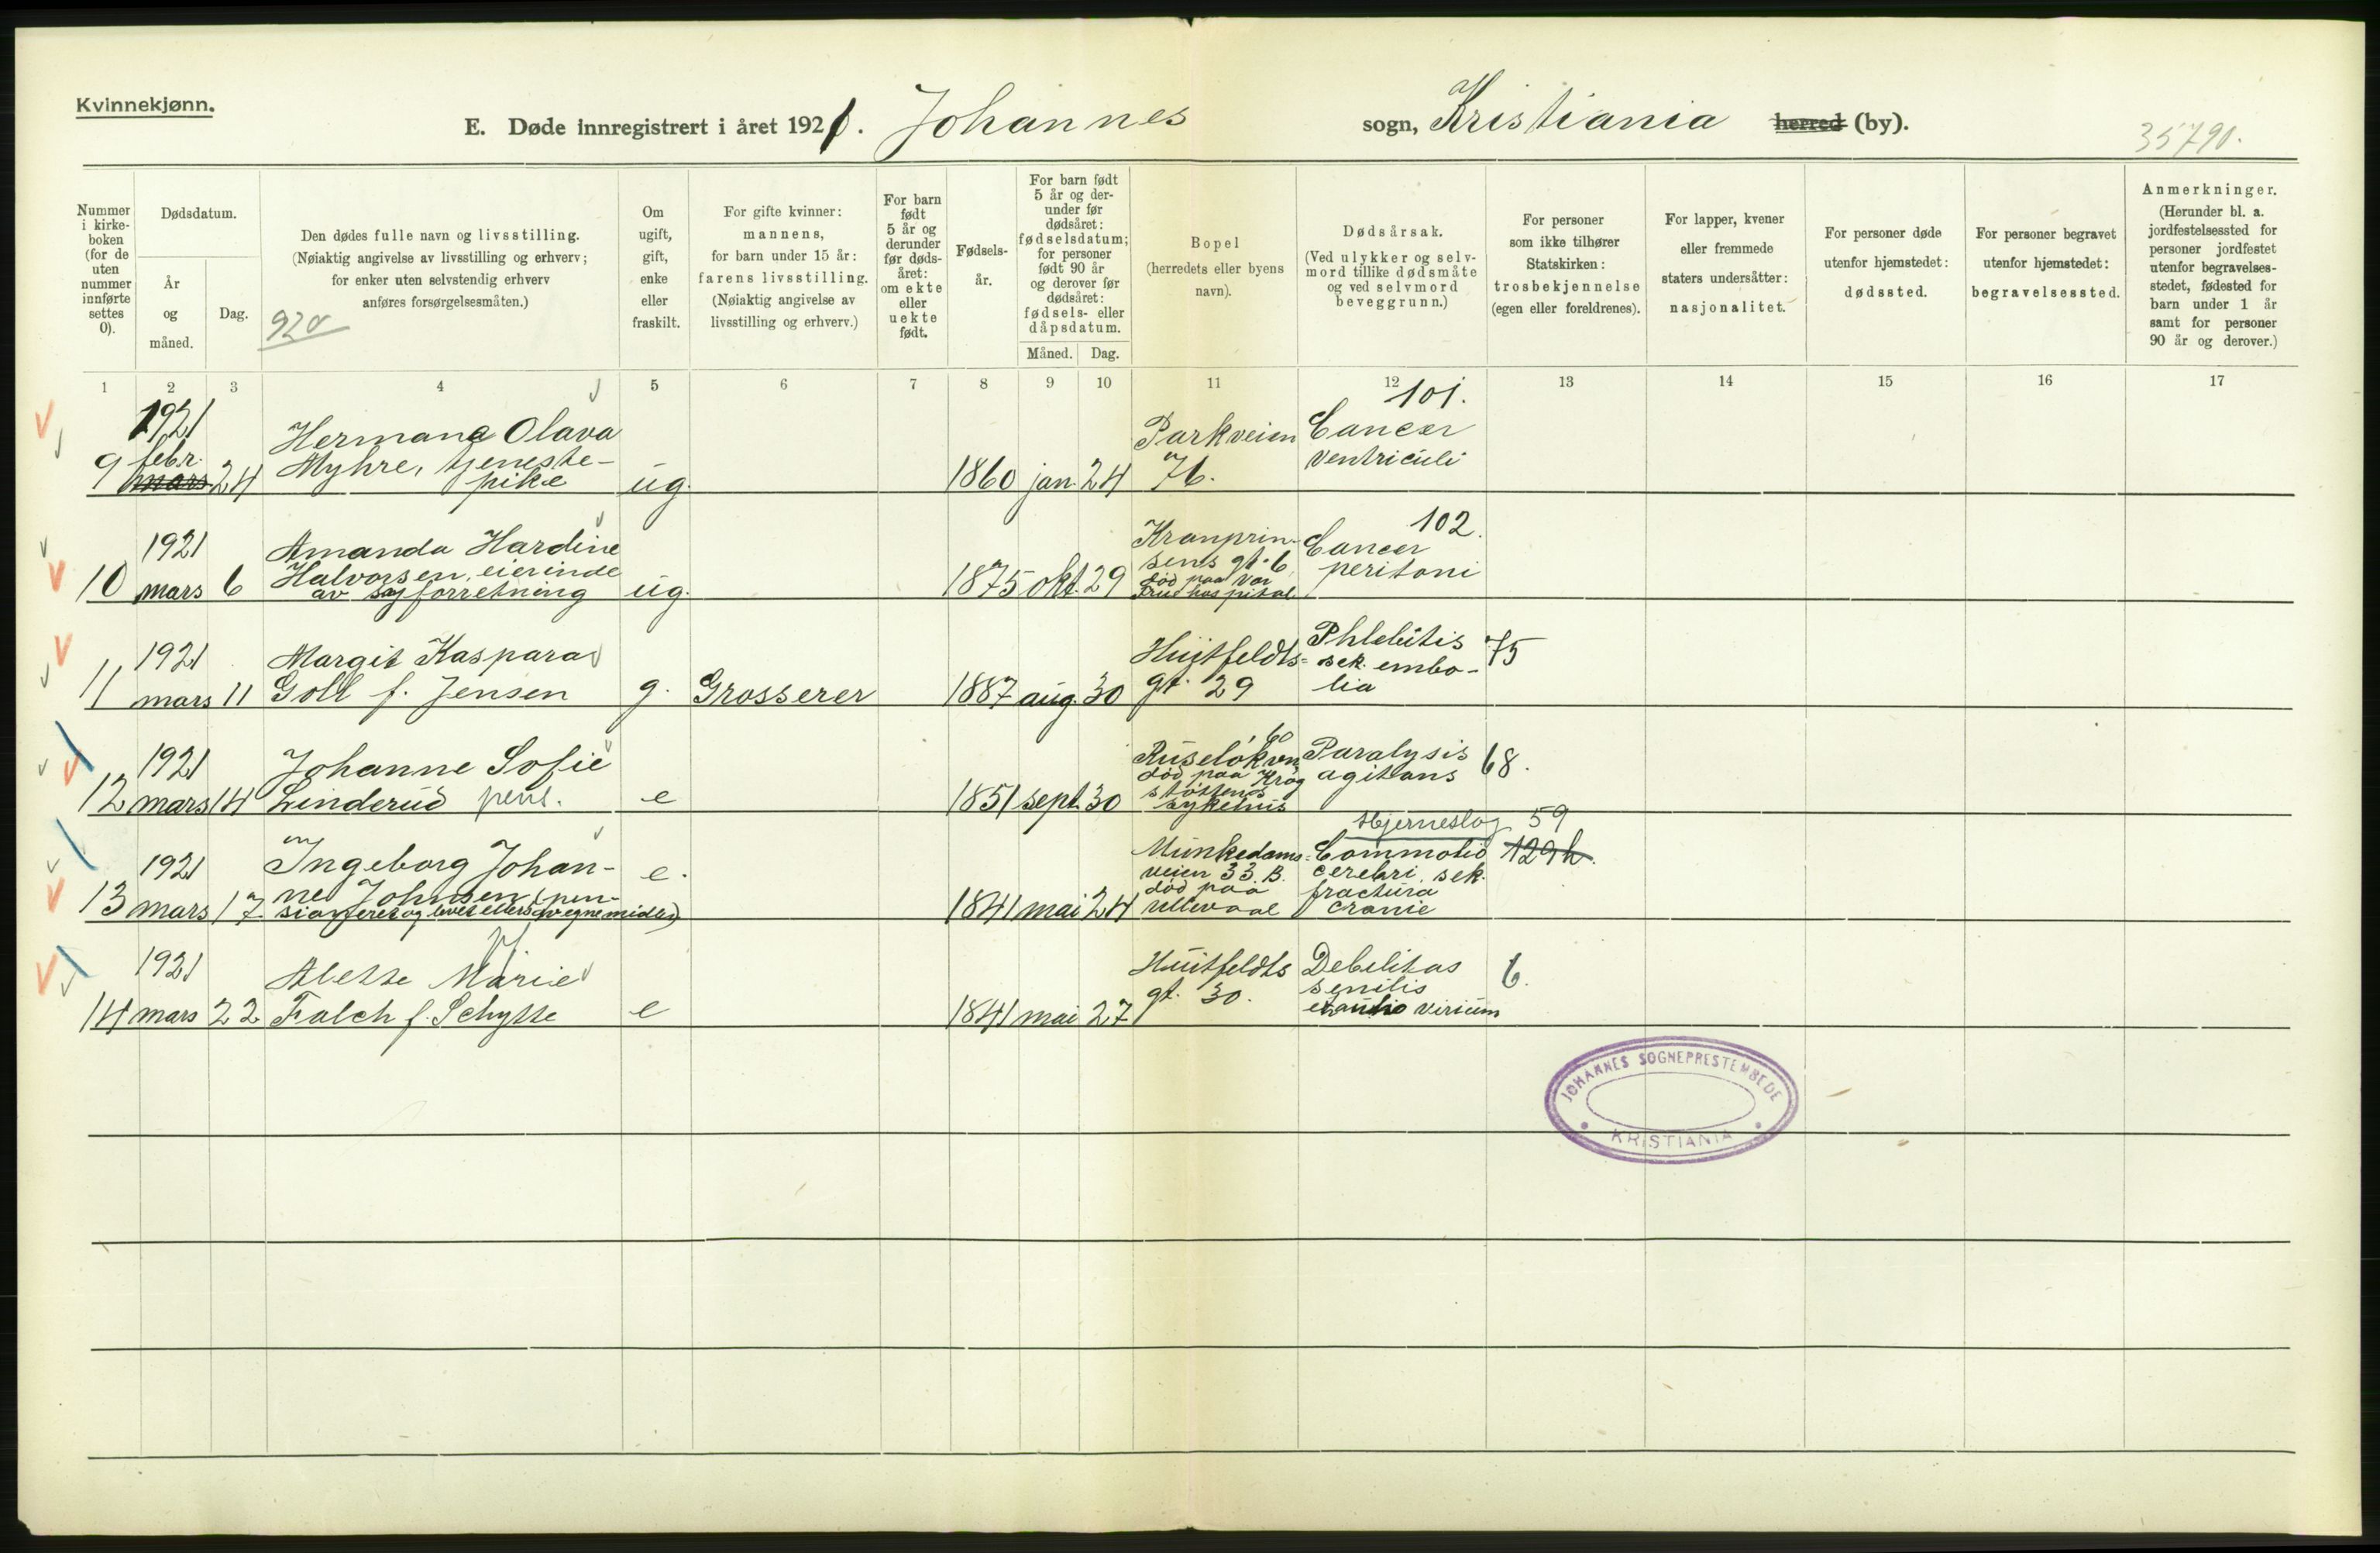 Kvinnekjønn.
E. Døde innregistrert i året 1921. Johannes sogn, Kristiania herred (by).
35790.
Nummer i kirkeboken (for de uten nummer innførte settes 0).
Dødsdatum.
År og måned.
Dag.
Den dødes fulle navn og livsstilling.
(Nøiaktig angivelse av livsstilling og erhverv;
for enker uten selvstendig erhverv
anføres forsørgelsesmåten.)
Om ugift, gift, enke eller fraskilt.
For gifte kvinner:
mannens,
for barn under 15 år:
farens livsstilling.
(Nøiaktig angivelse av
livsstilling og erhverv.)
For barn født 5 år og derunder før dødsåret: om ekte eller uekte født.
Fødselsår.
For barn født 5 år og derunder før dødsåret: fødselsdatum; for personer født 90 år og derover før dødsåret: fødsels- eller dåpsdatum.
Måned.
Dag.
Bopel
(herredets eller byens
navn).
Dødsårsak.
(Ved ulykker og selvmord tillike dødsmåte og ved selvmord beveggrunn.)
For personer
som ikke tilhører
Statskirken:
trosbekjennelse
(egen eller foreldrenes).
For lapper, kvener
eller fremmede
staters undersåtter:
nasjonalitet.
For personer døde
utenfor hjemstedet:
dødssted.
For personer begravet
utenfor hjemstedet:
begravelsessted.
Anmerkninger.
(Herunder bl. a. jordfestelsessted for personer jordfestet utenfor begravelsesstedet, fødested for barn under 1 år samt for personer 90 år og derover.)
1 2 3 4 5 6 7 8 9 10 11 12 13 14 15 16 17
9 1921 febr. mars 24 Hermana Olava Myhre, tjenestepike ug. 1860 jan. 24 Parkveien 76. Cancer ventriculi 101.
10 1921 mars 6 Amanda Hardine Halvorsen, eierinde av syforretning ug. 1875 okt. 29 Kronprinsens gt. 6 død paa Vor Frue hospital Cancer peritoni 102.
11 1921 mars 11 Margit Kaspara Goll f. Jensen g. Grosserer 1887 aug. 30 Huitfeldts gt. 29 Phlebitis sek. embolia 75
12 1921 mars 14 Johanne Sofie Linderud pens. e 1851 sept. 30 Ruseløkvn 60 død paa Krog støttens sykehus Paralysis agitans 68.
13 1921 mars 17 Ingeborg Johanne Johnsen (pensionert og levet ellers av egne midler) e. 1841 mai 24 Munkedamsveien 33.B. død paa Ullevaal Hjerneslag 59 Commotio cerebri, sek. fractura cranie 129h.
14 1921 mars 22 Alette Marie Falch f. Schytte e 1841 mai 27 Huitfeldts gt. 30. Debilitas senilis virium 6.
JOHANNES SOGNEPRESTEMBEDE
KRISTIANIA